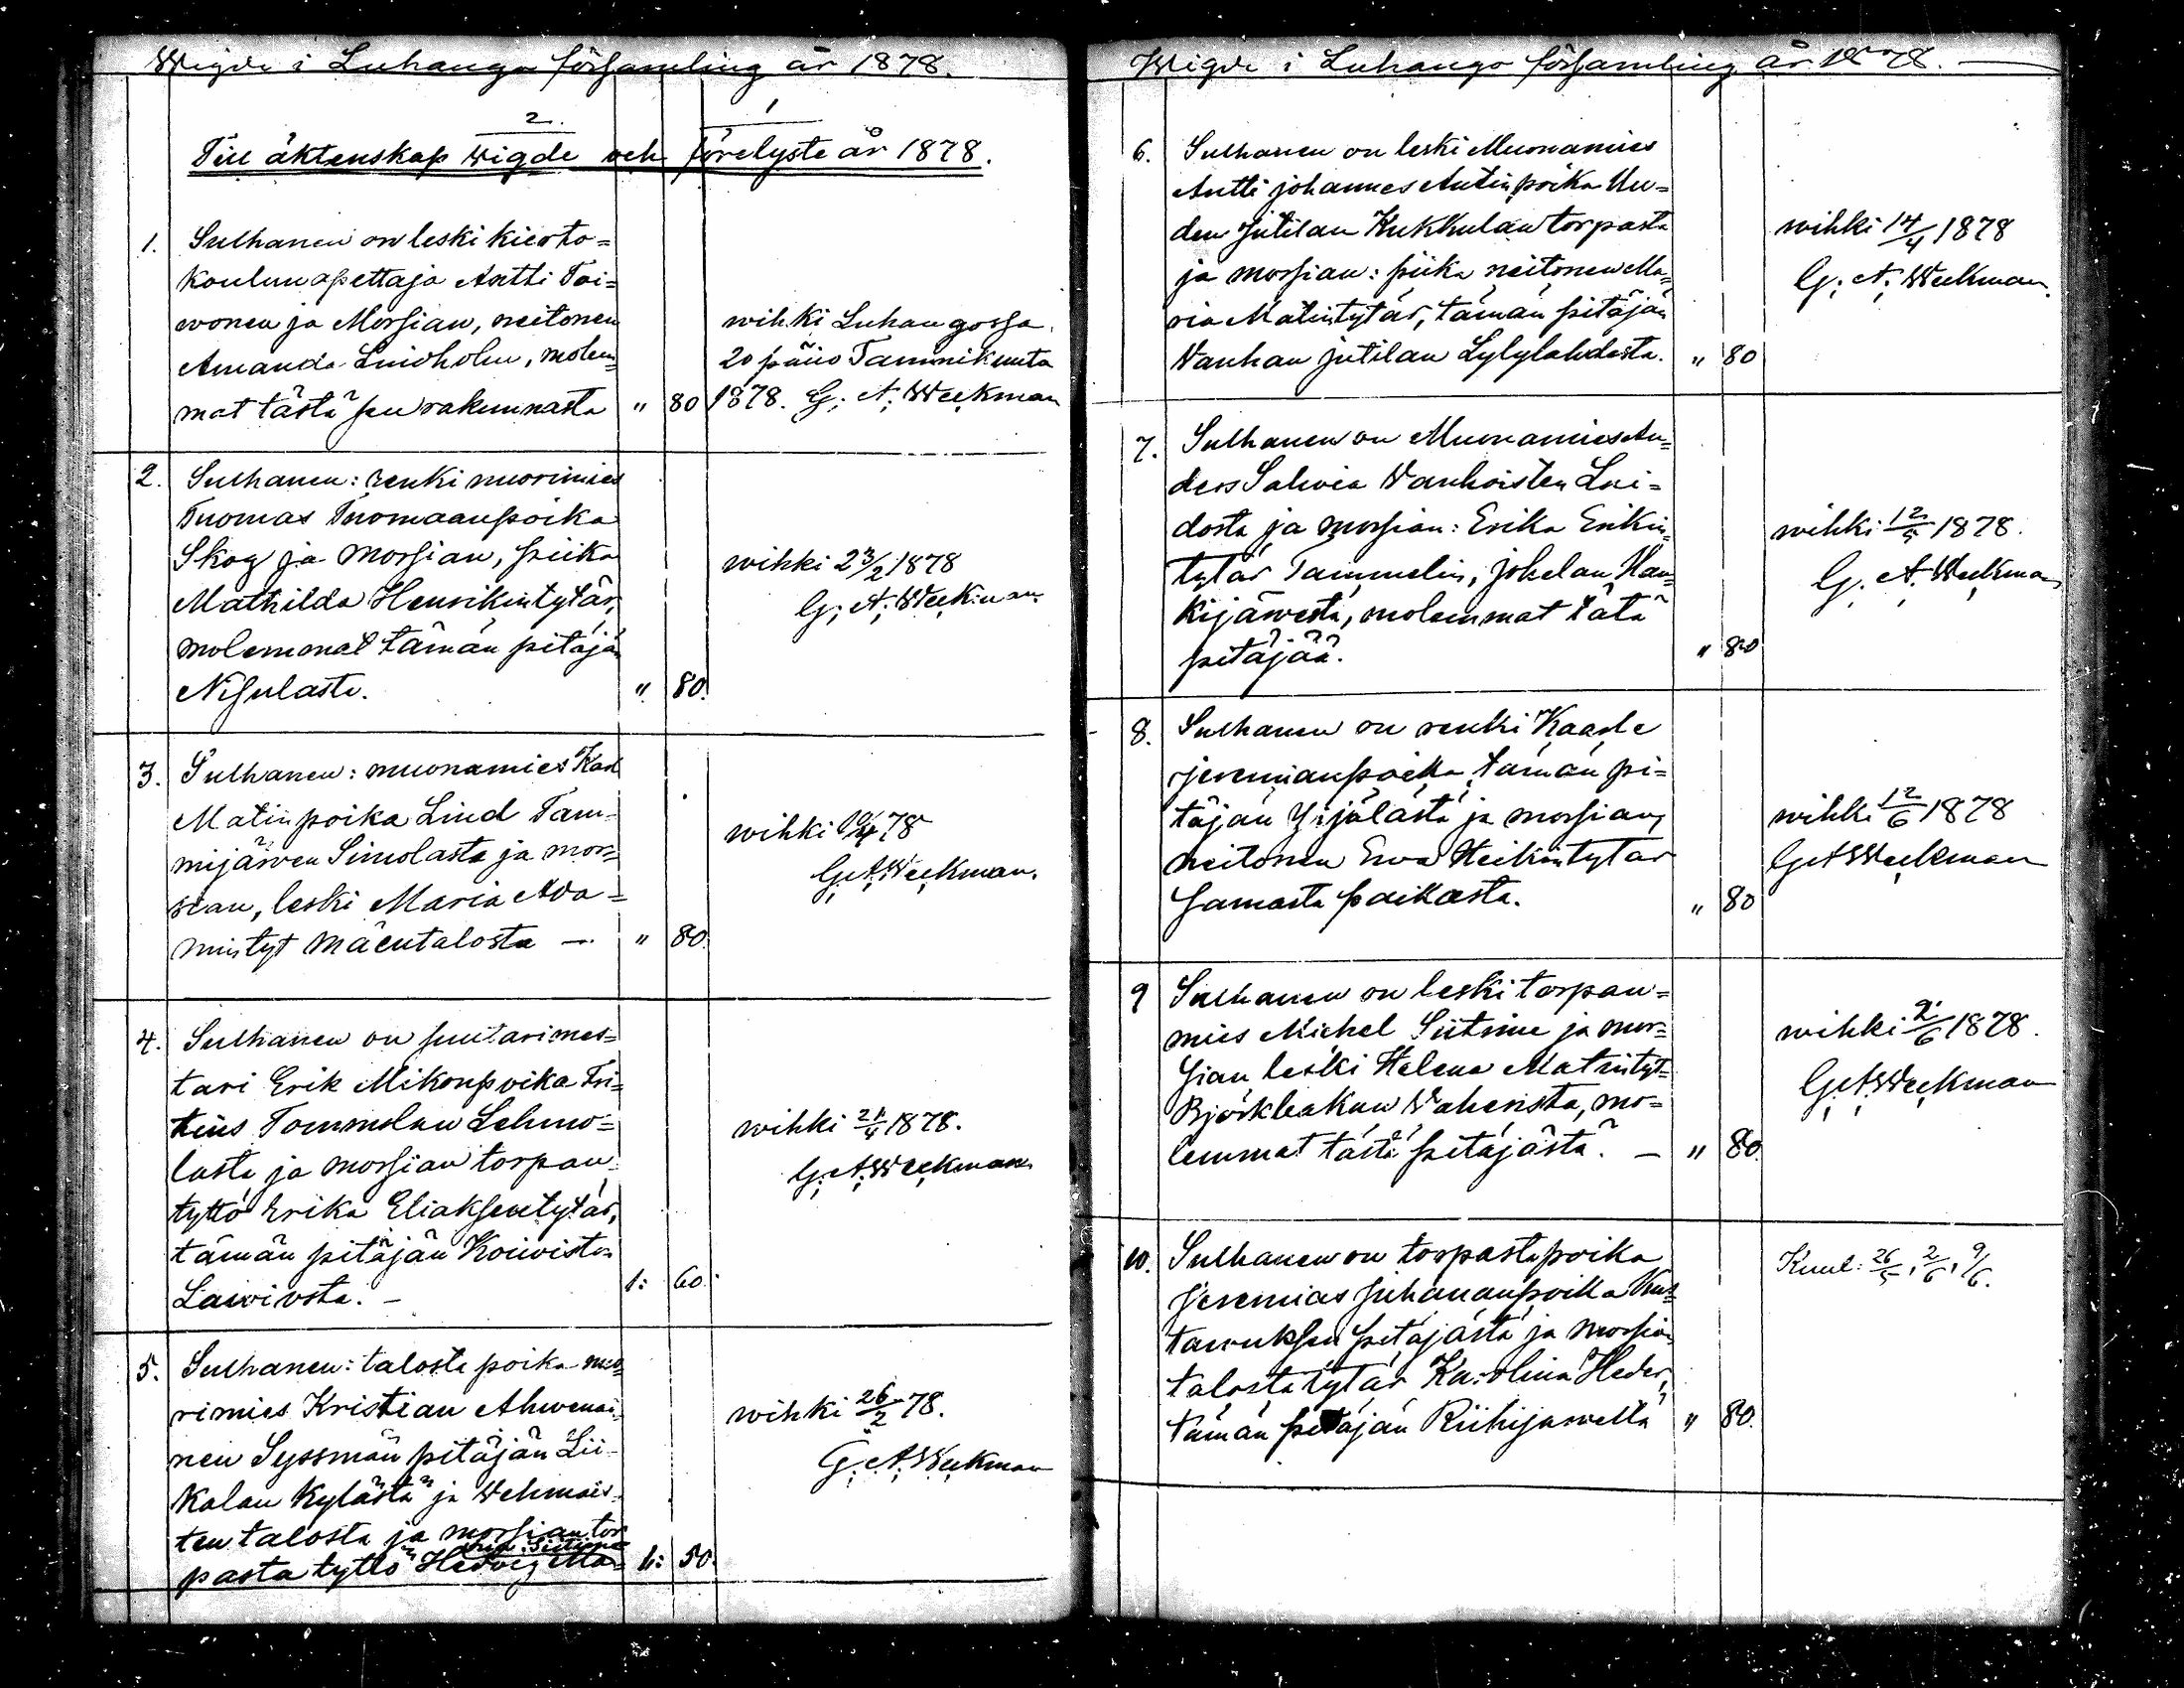 Wigde i Luhango församling år 1878.
2. 1
Till äktenskap Wigde och förelyste år 1878.
1. Sulhanen on leski kierto=
koulunopettaja Antti Toi=
wonen ja Morsian, neitonen
Amanda Lindholm, molem=
mat tästä seurakunnasta " 80
wihki Luhangossa
20 päiv Tammikuuta
1878. G. A. Weckman
2. Sulhanen: renki nuorimies
Tuomas Tuomaanpoika
Skog ja morsian, piika
Mathilda Henrikintytär,
molemmat tämän pitäjän
Nisulasta. " 80.
wihki 23/2 1878
G. A. Weckman
3. Sulhanen: muonamies Karl
Matinpoika Lind Tam=
mijärven Simolasta ja mor=
sian, leski Maria Ada=
mintyt Mäentalosta — " 80.
wihki 10/4 78
G. A. Weckman.
4. Sulhanen on suutarimes=
tari Erik Mikonpoika Fri=
tius Tommolan Lehmo=
lasta ja morsian torpan
tyttö Erika Eliaksentytär,
tämän pitäjän Koivisto
Lawiosta. — 1: 60.
wihki 21/4 1878.
G. A. Weckman
5. Sulhanen: talosta poika nuo=
rimies Kristian Ahwenai=
nen Syssmän pitäjän Lii=
kolan kylästä ja Wehmais=
ten talosta ja morsian tor
pasta tyttö Hedvig Ma=
ria Siitine 1: 50.
wihki 26/2 78.
G. A. Weckman
Wigde i Luhango församling år 1878. —
6. Sulhanen on leski Muonamies
Antti johannes Antinpoika Uu=
den Jutilan Kukkulan torpasta
ja morsian: piika neitonen Ma=
ria Matintytär, tämän pitäjän
Vanhan jutilan Lylylahdesta. " 80
wihki 14/4 1878
G. A. Weckman.
7. Sulhanen on Muonamies An=
ders Salvia Wanhoisten Loi=
dosta ja morsian: Erika Erikin=
tytär Tammelin, jokelan Hau=
kijärwestä, molemmat tätä
pitäjää. " 80
wihki 12/5 1878.
G. A. Weckman
8. Sulhanen on renki Kaarle
jeremianpoika tämän pi=
täjän Yijälästä ja morsian,
neitonen Ewa Heikintytar
samasta paikasta. " 80
wihki 12/6 1878
G A Weckman
9 Sulhanen on leski torpan=
mies Michel Siitinie ja mor=
sian leski Helena Matintyt=
Björkbakan Waherista, mo=
lemmat tästä pitäjästä. — " 80.
wihki 2/6 1878.
G. A. Weckman
10. Sulhanen on torpastapoika
Jeremias Juhananpoika Kus=
tawuksen pitäjästä ja morsian
talostatytär Karolina Heder,
tämän pitäjän Riihijarwelta " 80.
Kuul: 26/5, 2/6, 9/6.